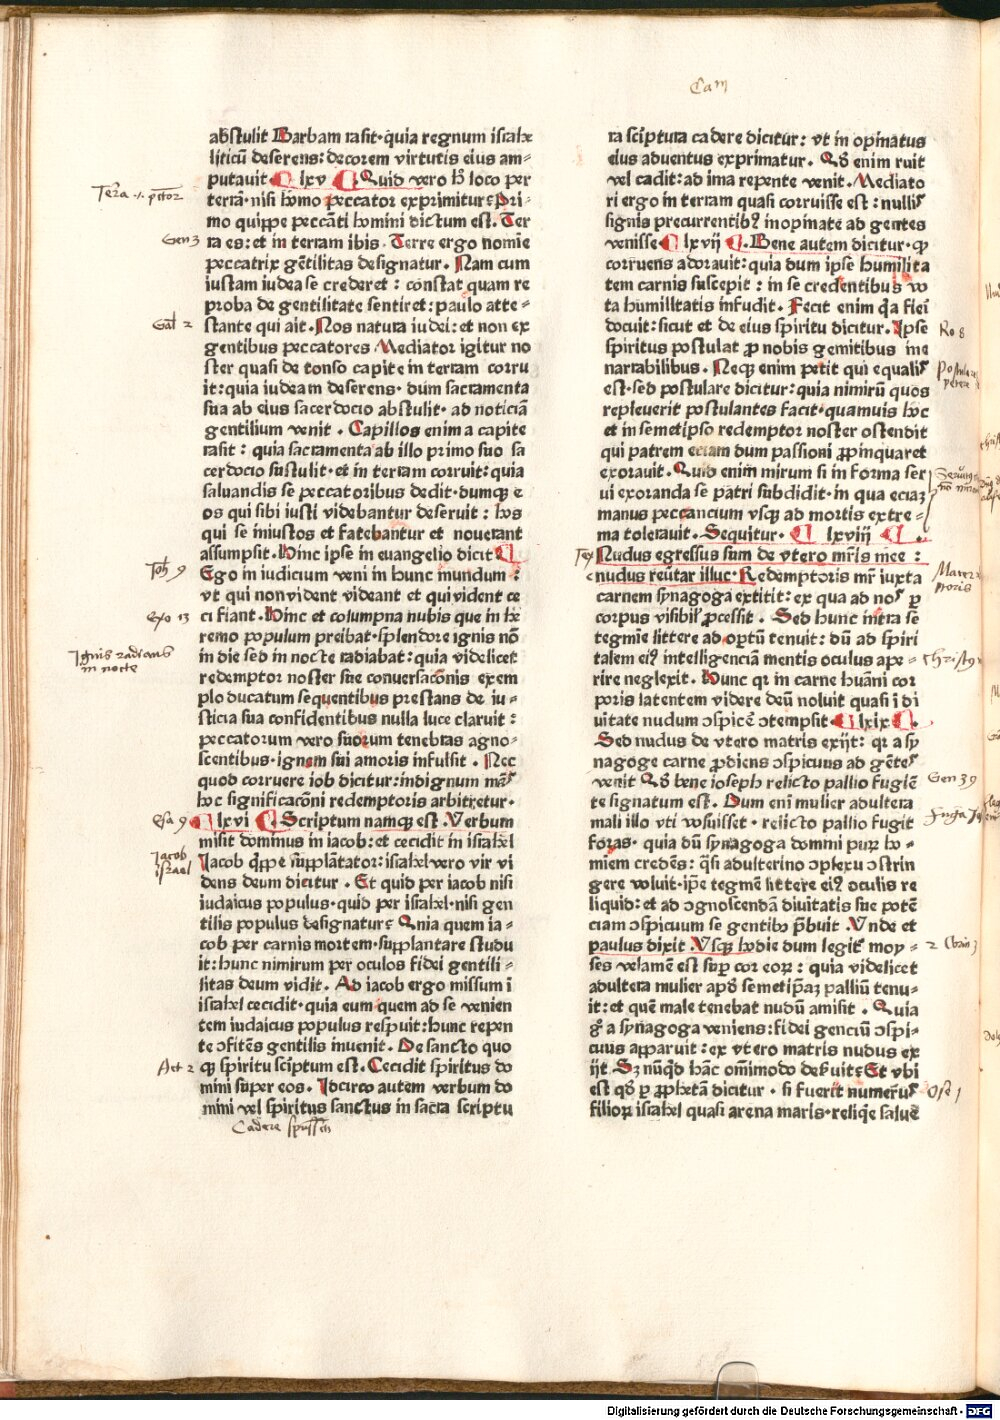 Cam
abstulit Barbam rasit·quia regnum israhe
liticū deserens: decorem virtutis eius am-
putauit lxv Quid vero hͦ loco per
Terra .i. pctor
terrā·nisi homo peccator exprimitur? Pri
mo quippe peccāti homini dictum est. Ter
Gen 3
ra es: et in terram ibis. Terre ergo nomīe
peccatrix gētilitas designatur. Nam cum
iustam iudea se crederet: constat quam re
proba de gentilitate sentiret: paulo atte-
Gal 2
stante qui ait. Nos natura iudei: et non ex
gentibus peccatores Mediator igitur no
ster quasi de tonso capite in terram corru
it: quia iudeam deserens· dum sacramenta
sua ab eius sacerdocio abstulit· ad noticiā
gentilium venit. Capillos enim a capite
rasit: quia sacramenta ab illo primo suo sa
cerdocio sustulit· et in terram corruit: quia
saluandis se peccatoribus dedit· dumqꝫ e
os qui sibi iusti videbantur deseruit: hos
qui se iniustos et fatebantur et nouerant
assumpsit. Hinc ipse in euangelio dicit
Joh 9
Ego in iudicium veni in hunc mundum:
vt qui non vident videant et qui vident ce
Exo 13
ci fiant. Hinc et columpna nubis que in he
remo populum preibat· splendore ignis nō
Ignis radians
in nocte
in die sed in nocte radiabat: quia videlicet
redemptor noster sue conuersacōnis exem
plo ducatum sequentibus prestans de iu-
sticia sua confidentibus nulla luce claruit:
peccatorum vero suorum tenebras agno-
scentibus· ignem sui amoris infulsit. Nec
quod corruere iob dicitur: indignum mēs
hoc significacōni redemptoris arbitretur·
Esa 9
lxvi Scriptum namqꝫ est. Verbum
misit dominus in iacob: et cecidit in israhel
Jacob
israel
Jacob qͥppe supplātator: israhel vero vir vi
dens deum dicitur. Et quid per iacob nisi
iudaicus populus· quid per israhel· nisi gen
tilis populus designatur? Quia quem ia-
cob per carnis mortem· supplantare studu
it: hunc nimirum per oculos fidei gentili-
litas deum vidit. Ad iacob ergo missum ī
israhel cecidit· quia eum quem ad se venien
tem iudaicus populus respuit: hunc repen
te ↄfitēs gentilis inuenit. De sancto quo
Act 2
qꝫ spiritu sciptum est. Cecidit spiritus do
mini super eos. Idcirco autem verbum do
mini vel spiritus sanctus in sacra scriptu
ra sciptura cadere dicitur: vt in opinatus
eius aduentus exprimatur. Qd̄ enim ruit
vel cadit: ad ima repente venit. Mediato
ri ergo in terram quasi corruisse est: nullis
signis precurrentibꝰ inopinate ad gentes
venisse lxvij Bene autem dicitur· ꝙ
corruens adorauit: quia dum ipse humilita
tem carnis suscepit: in se credentibus vo
ta humilitatis infudit. Fecit enim qd̄a fieri
docuit: sicut et de eius spiritu dicitur. Ipse
Ro 8
spiritus postulat ꝓ nobis gemitibus ine
narrabilibus. Neqꝫ enim petit qui equalis
est· sed postulare dicitur: quia nimirū quos
repleuerit postulantes facit· quamuis hoc
et in semetipso redemptor noster ostendit
qui patrem eciam dum passioni ꝓpinquaret
exorauit. Quid enim mirum si in forma ser
ui exoranda se patri subdidit· in qua eciaꝫ
manus peccancium vsqꝫ ad mortis extre-
ma tolerauit. Sequitur. lxviij
Nudus egressus sum de vtero mr̄is mee:
nudus reūtar illuc· Redemptoris mr̄ iuxta
carnem synagoga extitit: ex qua ad nos ꝑ
corpus visibilis ꝓcessit. Sed hunc intra se
tegmīe littere ad optū tenuit: dū ad spiri
talem eiꝰ intelligenciā mentis oculus ape-
rire neglexit. Hunc qr in carne huāni cor
poris latentem videre deū noluit quasi ī di
uitate nudum ↄspicē ↄtempsit· lxix
Sed nudus de vtero matris exijt: qr a sy
nagoge carne ꝓdiens ↄspicuus ad gētes
Gen 39
venit Qd̄ bene ioseph relicto pallio fugiē
te signatum est. Dum enī mulier adultera
mali illo vti voluisset· relicto pallio fugit
foras· quia dū synagoga domni puꝝ ho-
miem credēs: qͣsi adulterino ↄplexu ↄstrin
gere voluit· ip̄e tegmē littere eiꝰ oculis re
liquid: et ad ↄgnoscendā diuitatis sue potē
ciam ↄspicuum se gentibꝰ p̄buit. Vnde et
paulus dixit. Vsqꝫ hodie dum legitͬ moy-
ses velamē est suꝑ cor eoꝝ: quia videlicet
adultera mulier apd̄ semetip̄aꝫ palliū tenu-
it: et quē male tenebat nudū amisit. Quia
gͦ a synagoga veniens: fidei genciū ↄspi-
cuus apparuit: ex vtero matris nudus ex
ijt. Sꝫ nūqd̄ hāc om̄imodo deseruit? Et vbi
Ose 1
est qd̄ ꝑ ꝓphetām dicitur. si fuerit numerus
filioꝝ israhel quasi arena maris· reliqͥe salue
Cadere
Digitalisierung gefördert durch die Deutsche Forschungsgemeinschaft - DFG